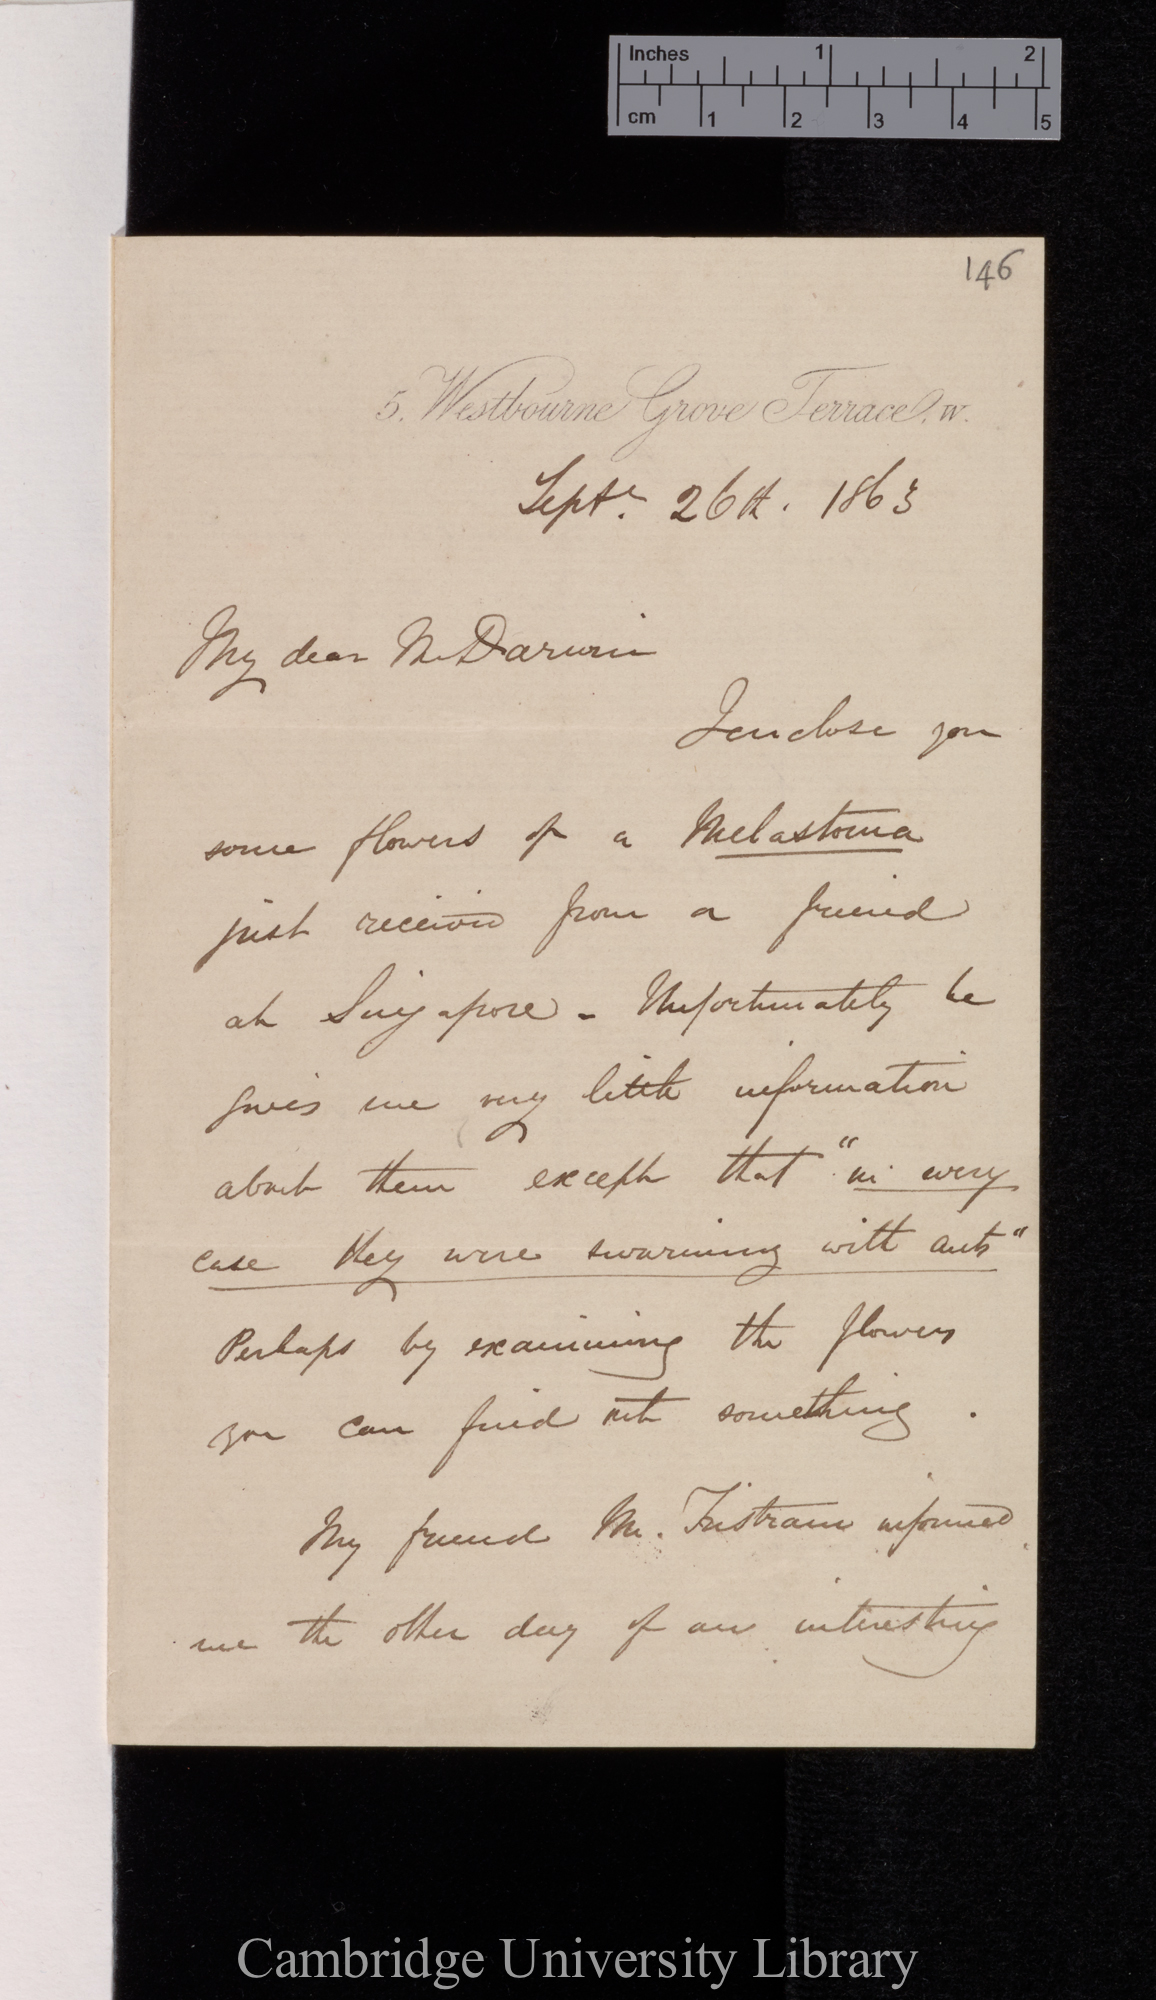 Inches 1 2
cm 1 2 3 4 5
146
5. Westbourne Grove Terrace. W.
Septr. 26th. 1863
My dear Mr Darwin
I enclose you
some flowers of a Melastoma
just received from a friend
at Singapore - Unfortunately he
gives me very little information
about them except that "in every
case they were swarming with ants"
Perhaps by examining the flowers
you can find out something.
My friend Mr. Tristram informed
me the other day of an interesting
Cambridge University Library